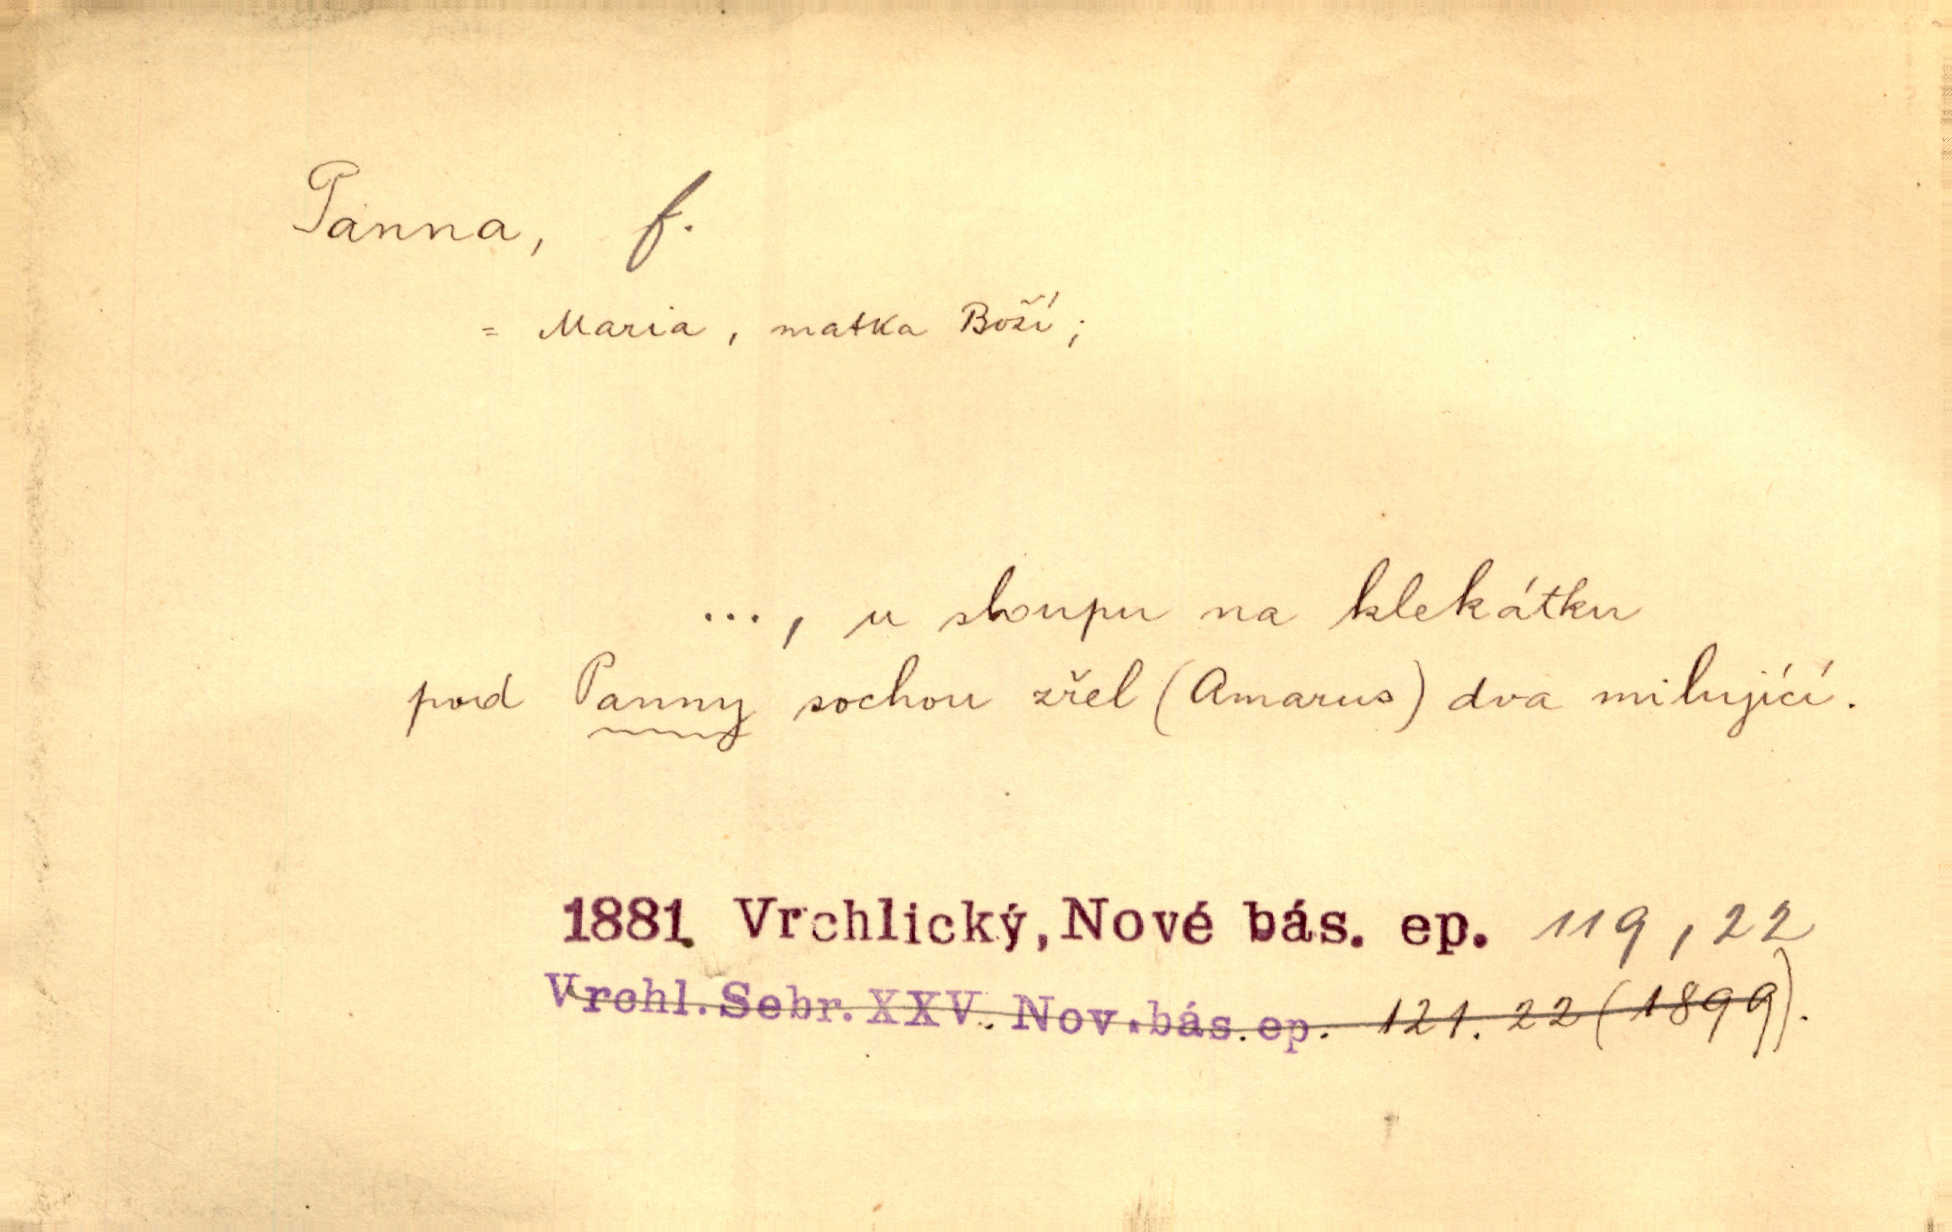 Panna, f.
= Maria, matka Boží;
..., u sloupu na klekátku
pod Panny sochou zřel (Amarus) dva milující.
1881. Vrchlický, Nové bás. ep. 119, 22
Vrchl. Sebr. XXV. Nov. bás. ep. 121. 22 (1899).